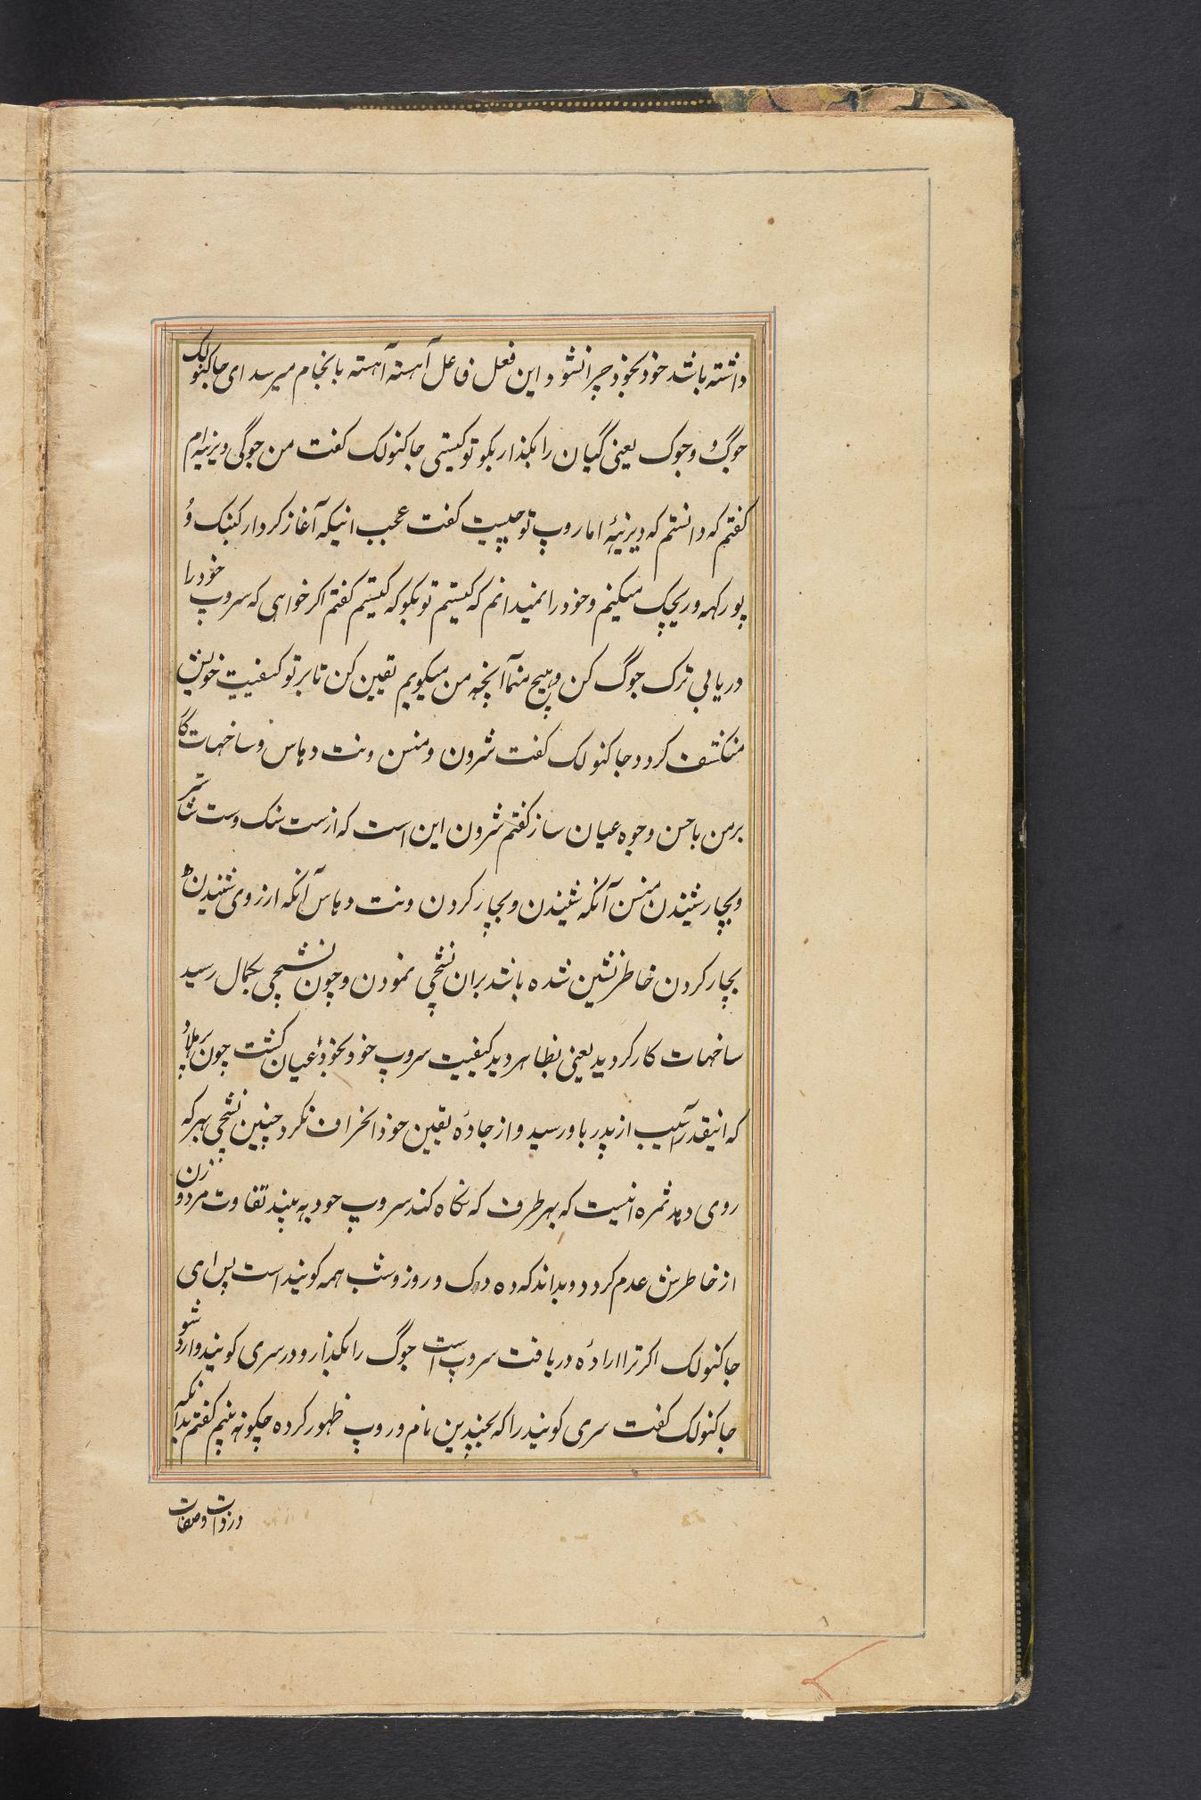 داشته باشد خود بخود چرا نشود این فعل فاعل آهسته آهسته بانجام میرسد ای جاکنولک
جوگ وجوک یعنی گیان را بکذار بکو تو کیستی جاکنولک کفت من جوگی دیرینه ام
کفتم که دانستم که دیرینهٔ اما روپ تو چیست کفت عجب اینکه آغاز کردار کنبک و
پورکهه وریچک میکنم وخود را نمیدانم که کیستم تو بکو که کیستم کفتم اکر خواهی که سروپ خود را
دریابی ترک جوگ کن وهیچ منما آنچه من میکویم یقین کن تا بر تو کیفیت خویش
منکشف کردد جاکنولک کفت شرون ومنن ونت دیاس وساخهات کار
برمن باحسن وجوه عیان ساز کفتم شرون این است که از ست سنک وست شاستر
وبچار شنیدن منن آنکه شنیدن وبچار کردن ونت دیاس آنکه از روی شنیدن و
بچار کردن خاطر نشین شده باشد بران نشچی نمودن وچون نشچی بکمال رسید
ساخهات کار کردید یعنی بظاهر دید کیفیت سروپ خود بخود عیان کشت چون پرهلاد
که اینقدر آسیب از پدر باو رسید واز جادهٔ یقین خود انحراف نکرد چنین نشچی بهر که
روی دهد ثمره اینست که بهر طرف که نکاه کند سروپ خود به بیند تفاوت مرد و زن
از خاطرش عدم کردد وبداند که ده دک و روز وشب همه کوبند است پس ای
جاکنولک اکر ترا ارادهٔ دریافت سروپ است جوگ را بکذار ودر سری کوبند وارد شو
جاکنولک کفت سری کوبند را که بچندین نام و روپ ظهور کرده چکونه بینم کفتم بدانکه
در ذات وصفات